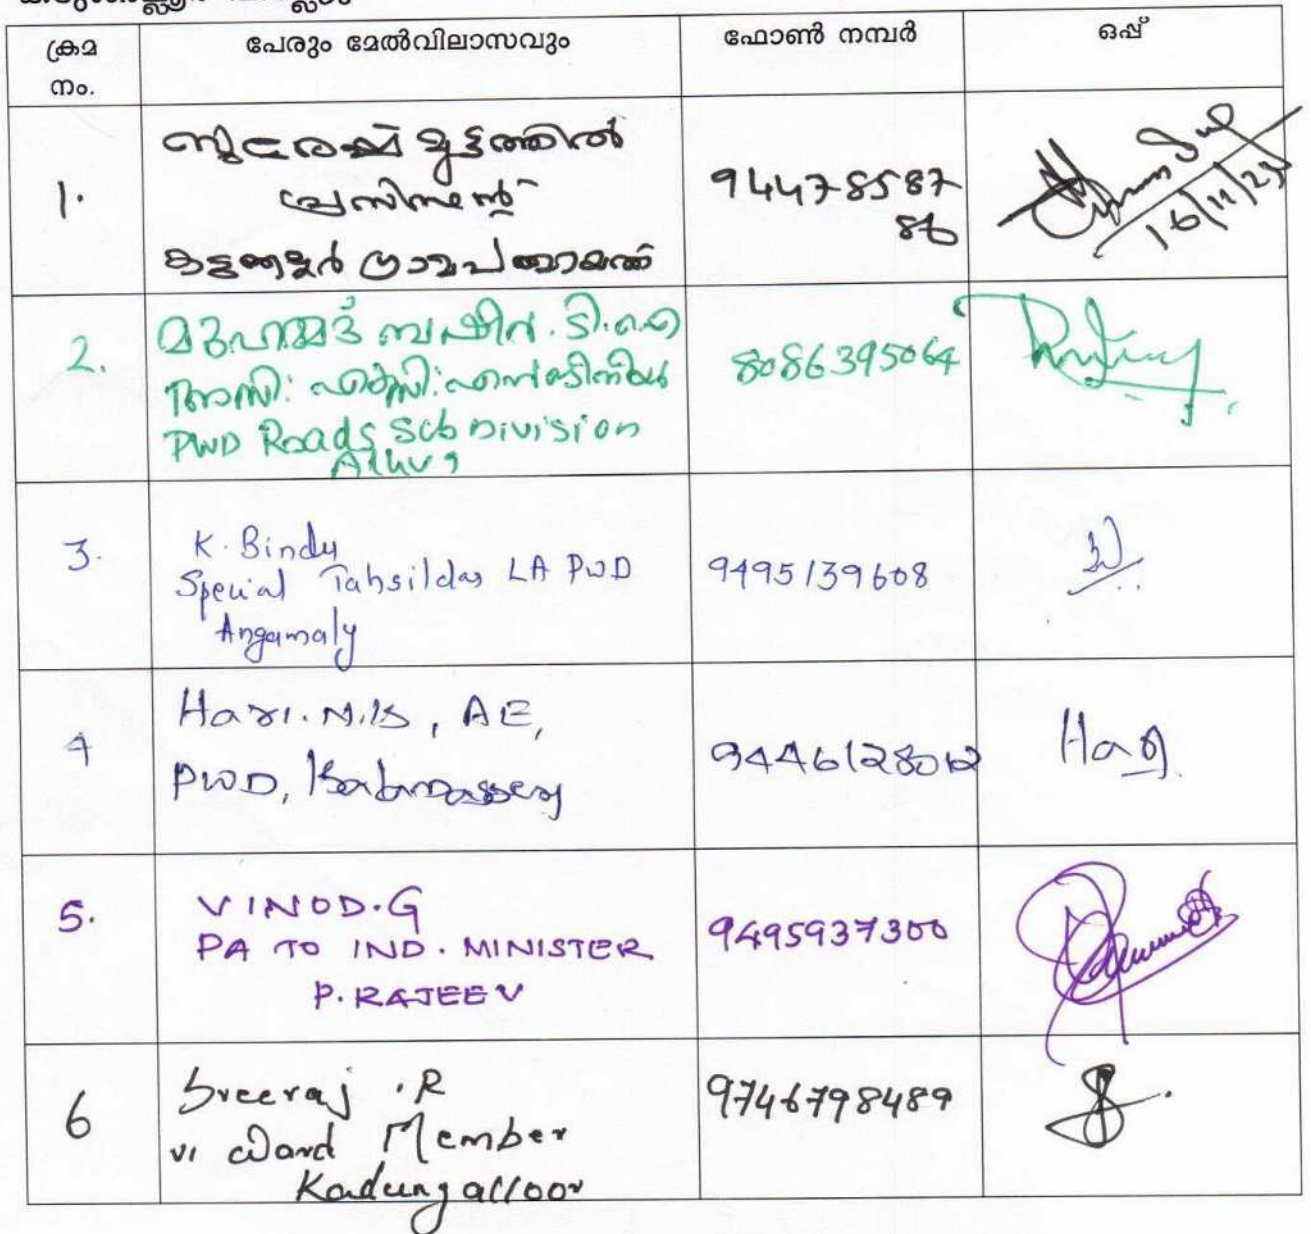 ക്രമ നം.
പേരും മേൽവിലാസവും
ഫോൺ നമ്പർ
ഒപ്പ്
1.
സുരേഷ് മുട്ടത്തിൽ
പ്രസിഡന്റ്
കടുങ്ങല്ലൂർ ഗ്രാമപഞ്ചായത്ത്
9447858786
16/11/23
2.
മുഹമ്മദ് ബഷീർ. ടി.എ
അസി: എക്സി: എൻജിനീയർ
PWD Roads Sub Division
Aluva
8086395064
3.
K. Bindu
Special Tahsildar LA PWD
Angamaly
9495139608
4
Hari. N.K, AE,
PWD, Kalamassery
9446128012
Hari
5.
VINOD.G
PA TO IND. MINISTER
P. RAJEEV
9495937300
6
Sreeraj .R
VI Ward Member
Kadungalloor
9746798489